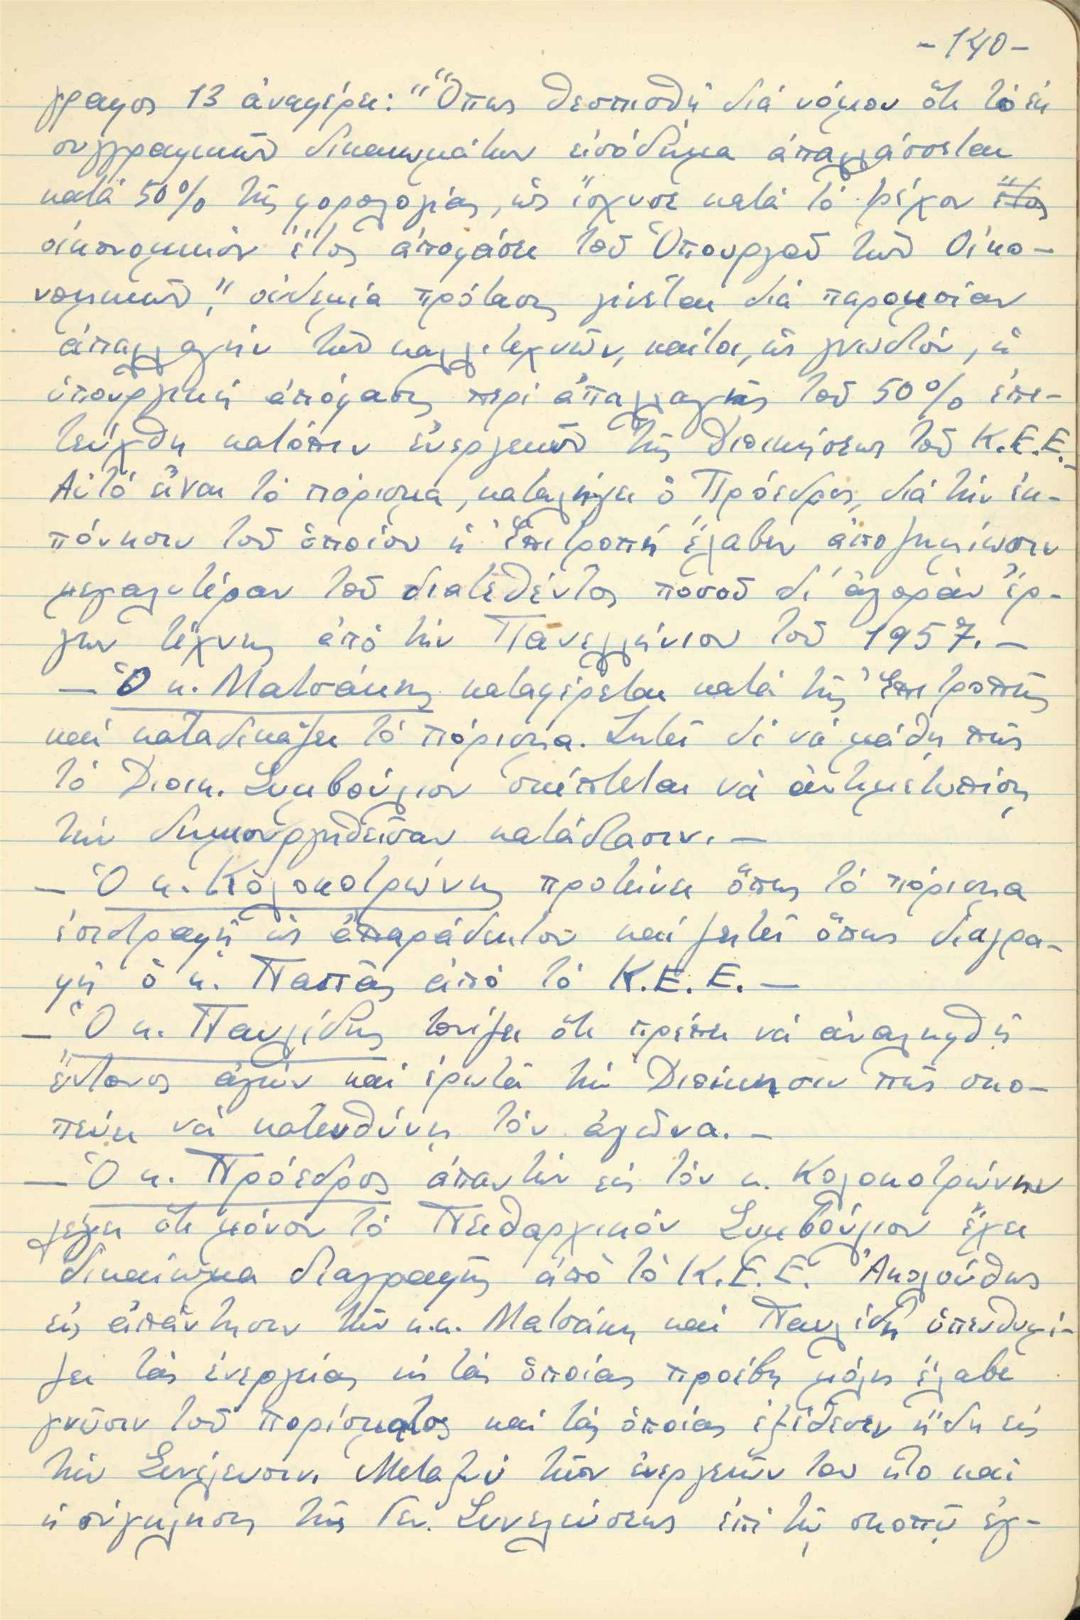 -140-
γραφος 13 ἀναφέρει: "Ὅπως θεσπισθῇ διά νόμου ὅτι τό ἐκ
συγγραφικῶν δικαιωμάτων εἰσόδημα ἀπαλλάσσεται
κατά 50% τῆς φορολογίας, ὡς ἴσχυσε κατά τό τρέχον ἔτος
οἰκονομικόν ἔτος ἀποφάσει τοῦ Ὑπουργοῦ τῶν Οἰκο-
νομικῶν", οὐδεμία πρότασις γίνεται διά παρομοίαν
ἀπαλλαγήν τῶν καλλιτεχνῶν, καίτοι, ὡς γνωστόν, ἡ
ὑπουργική ἀπόφασις περί ἀπαλλαγῆς τοῦ 50% ἐπε-
τεύχθη κατόπιν ἐνεργειῶν τῆς Διοικήσεως τοῦ Κ.Ε.Ε.-
Αὐτό εἶναι τό πόρισμα, καταλήγει ὁ Πρόεδρος, διά τήν ἐκ-
πόνησιν τοῦ ὁποίου ἡ Ἐπιτροπή ἔλαβεν ἀποζημίωσιν
μεγαλυτέραν τοῦ διατεθέντος ποσοῦ δι' ἀγοράν ἔρ-
γων τέχνης ἀπό τήν Πανελλήνιον τοῦ 1957.-
- Ὁ κ. Ματσάκης καταφέρεται κατά τῆς Ἐπιτροπῆς
καί καταδικάζει τό πόρισμα. Ζητεῖ δέ νά μάθῃ πῶς
τό Διοικ. Συμβούλιον σκέπτεται νά ἀντιμετωπίσῃ
τήν δημιουργηθεῖσαν κατάστασιν.-
- Ὁ κ. Κολοκοτρώνης προτείνει ὅπως τό πόρισμα
ἐπιστραφῇ ὡς ἀπαράδεκτον καί ζητεῖ ὅπως διαγρα-
φῇ ὁ κ. Παπᾶς ἀπό τό Κ.Ε.Ε.-
- Ὁ κ. Παυλίδης τονίζει ὅτι πρέπει νά ἀναληφθῇ
ἔντονος ἀγών καί ἐρωτᾶ τήν Διοίκησιν πῶς σκο-
πεύει νά κατευθύνῃ τόν ἀγῶνα.-
- Ὁ κ. Πρόεδρος ἀπαντῶν εἰς τόν κ. Κολοκοτρώνην
λέγει ὅτι μόνον τό Πειθαρχικόν Συμβούλιον ἔχει
δικαίωμα διαγραφῆς ἀπό τό Κ.Ε.Ε. Ἀκολούθως
εἰς ἀπάντησιν τῶν κ.κ. Ματσάκη καί Παυλίδη ὑπενθυμί-
ζει τάς ἐνεργείας εἰς τάς ὁποίας προέβη μόλις ἔλαβε
γνῶσιν τοῦ πορίσματος καί τάς ὁποίας ἐξέθεσεν ἤδη εἰς
τήν Συνέλευσιν. Μεταξύ τῶν ἐνεργειῶν του ἦτο καί
ἡ σύγκλησις τῆς Γεν. Συνελεύσεως ἐπί τῷ σκοπῷ ἐγ-